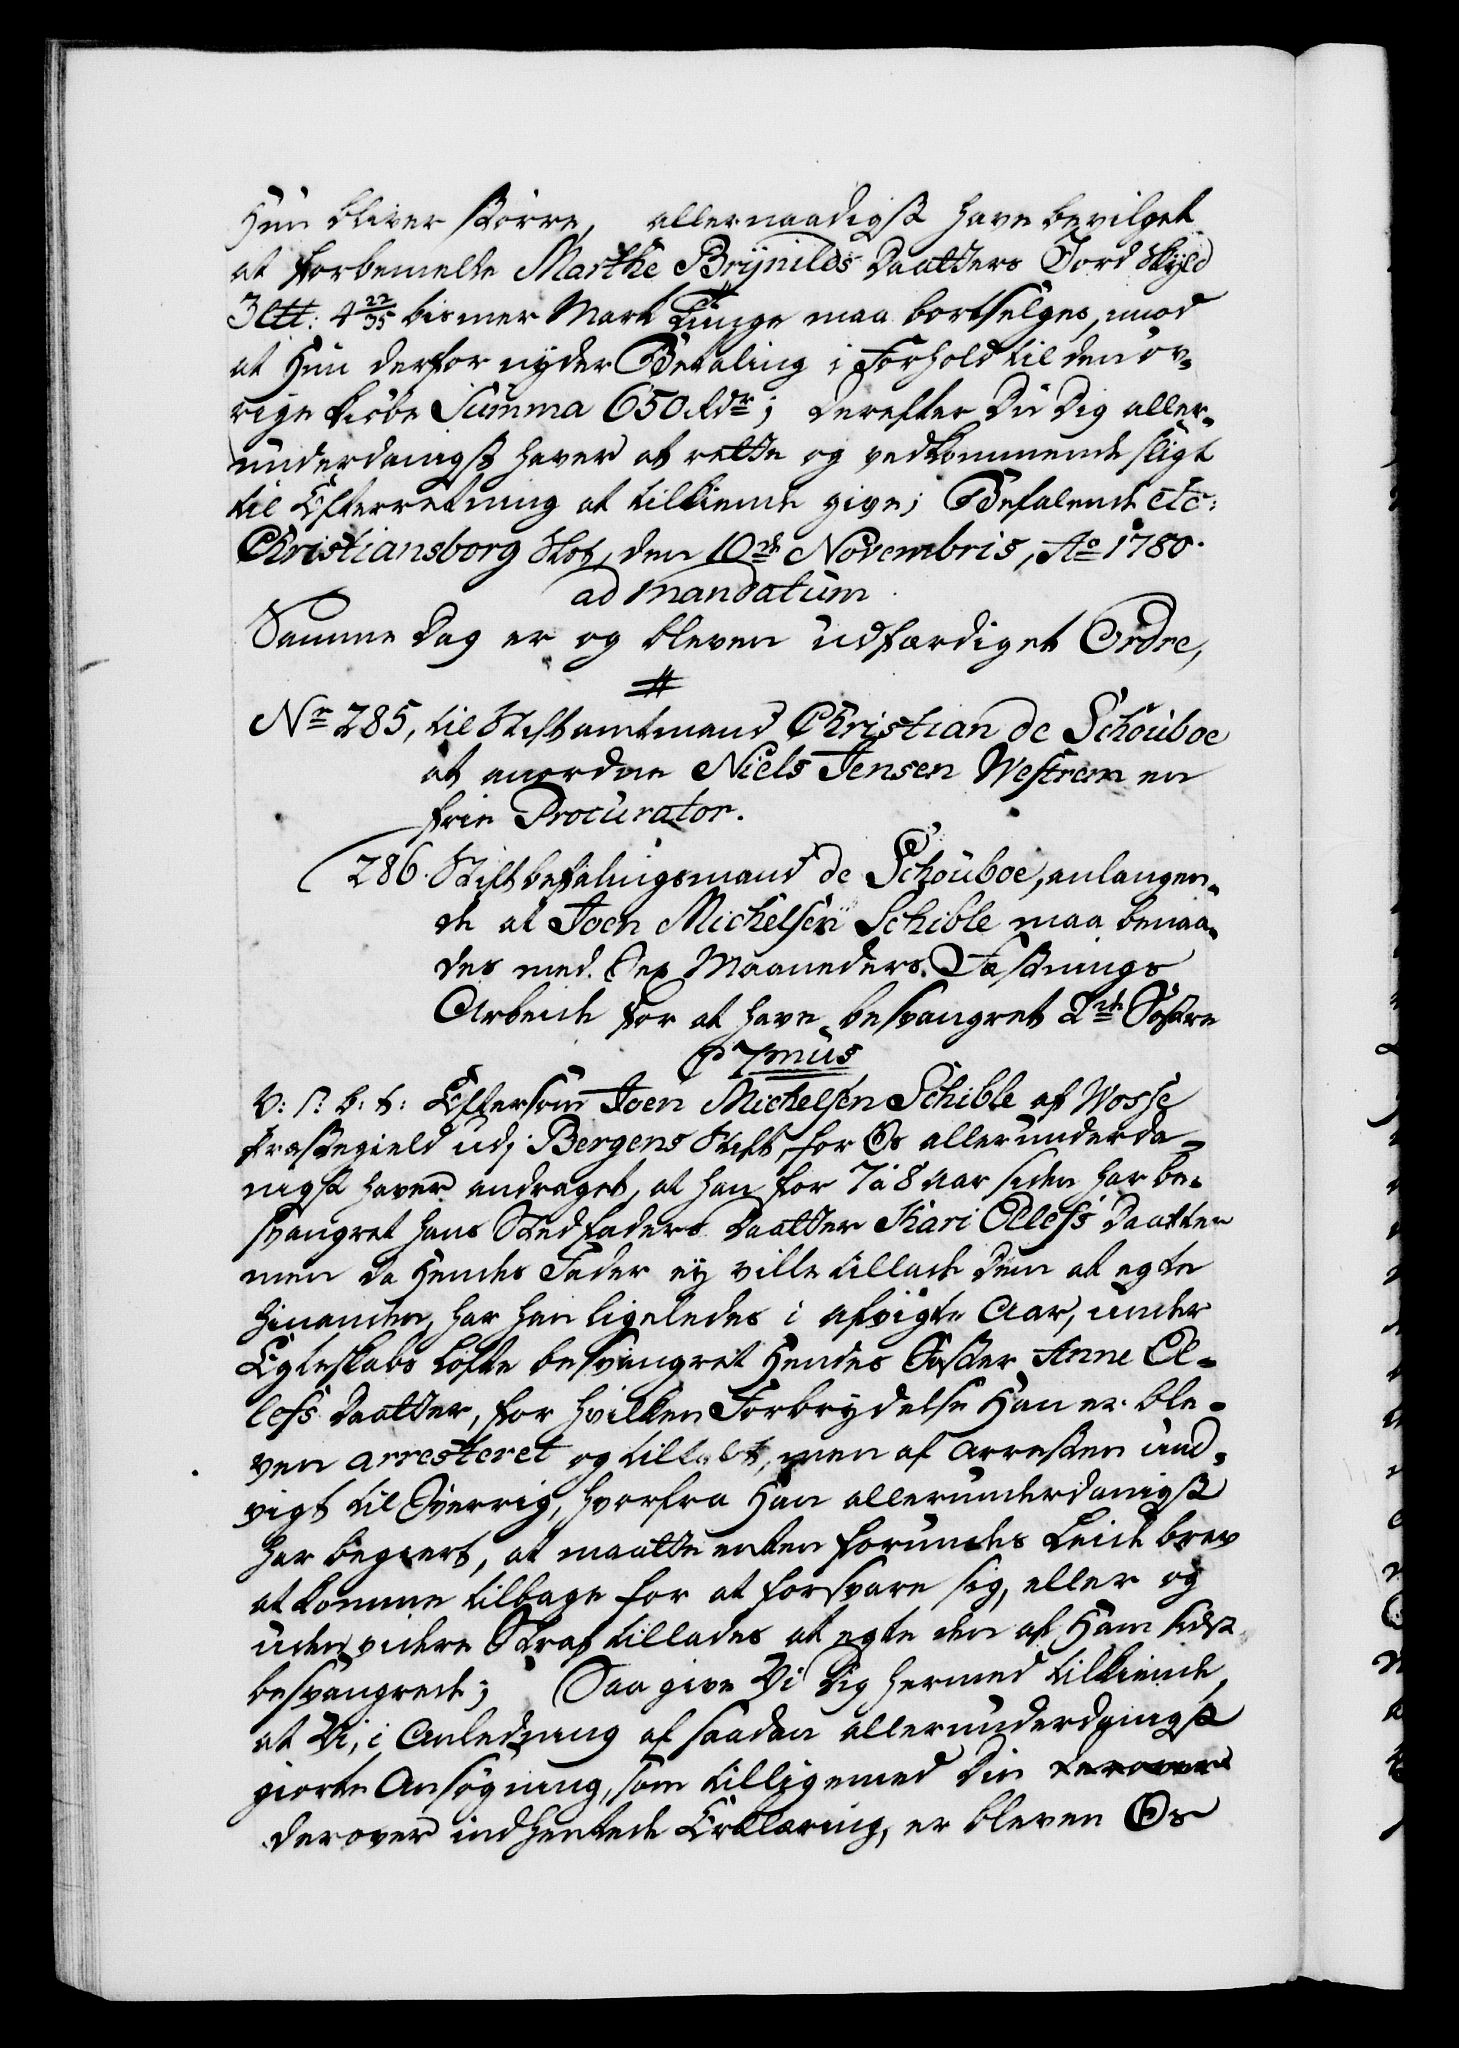 Hun bliver større, allernaadigst have bevilget
at forbemelte Marthe Brÿnilds Daatters Jord Skyld
3 ℔: 4 22/35 bismer Mark Tunge maa bortselges, mod
at Hun derfor nyder Betaling i Forhold til den öv-
rige Kiöbe Summa 650 Rdr; derefter Du dig aller-
underdanigst haver at rette og vedkommende sligt
til Efterretning at tilkiende give; Befalende etc:
Christiansborg Slot, den 10de Novembris, Ao 1780.
ad mandatum
Samme Dag er og bleven udfærdiget Ordre,
Nr 285, til Stiftamtmand Christian de Schouboe
at anordne Niels Jensen Westrem en
frie Procurator.
286. Stiftbefalingsmand de Schouboe, anlangen-
de at Joen Michelsen Schible maa benaa-
des med Sex Maaneders Fæstnings
Arbeide for at have besvangret 2de Søstre
C 7mus
V: S: B: T: Eftersom Joen Michelsen Schible af Wosse
Præstegield udj Bergens Stift, for Os allerunderda-
nigst haver andraget, at han for 7 à 8 Aar siden har be-
svangret hans Stedfaders Daatter Kari Ellefs Daatter
men da Hendes Fader ey ville tillade dem at egte
hinanden, har han ligeledes i afvigte Aar, under
Egteskabs Löfte besvangret Hendes Søster Anne El-
lefs Daatter, for hvilken Forbrydelse Han er ble-
ven arresteret og tiltalt, men af Arresten und-
vigt til Sverrig, hvorfra Han allerunderdanigst
har begiert, at maatte enten forundes Leide brev
at komme tilbage for at forsvare sig, eller og
uden videre Straf tillades at egte den af Ham sidst
besvangrede; Saa give Vi dig hermed tilkiende,
at Vi, i Anledning af saadan allerunderdanigst
giorte Ansögning, som tilligemed Din derover
derover indhentede Erklæring, er bleven Os